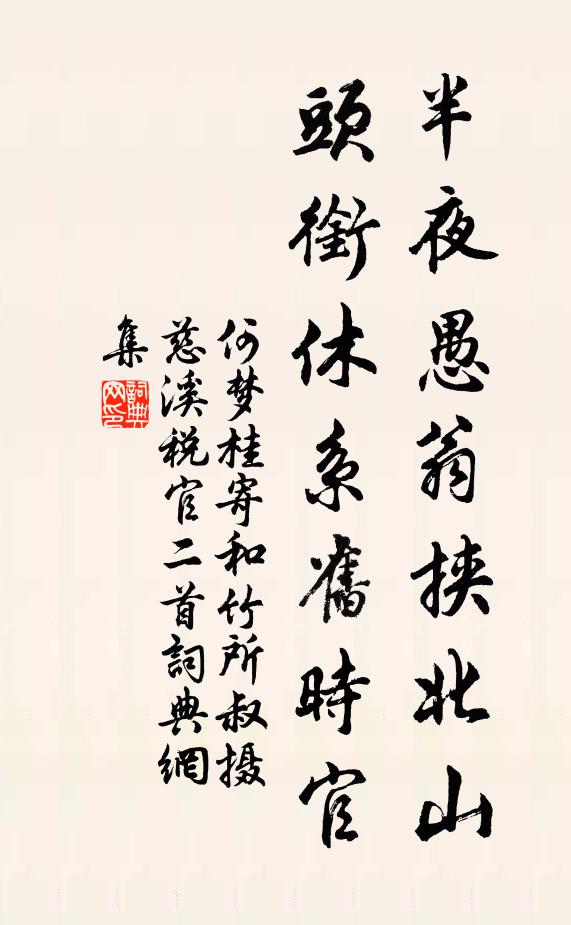 半夜愚翁挟北山
頭銜休系舊時官
何梦桂寄和竹所叔摄
慈溪税官二首詞典網
集
詞典网印